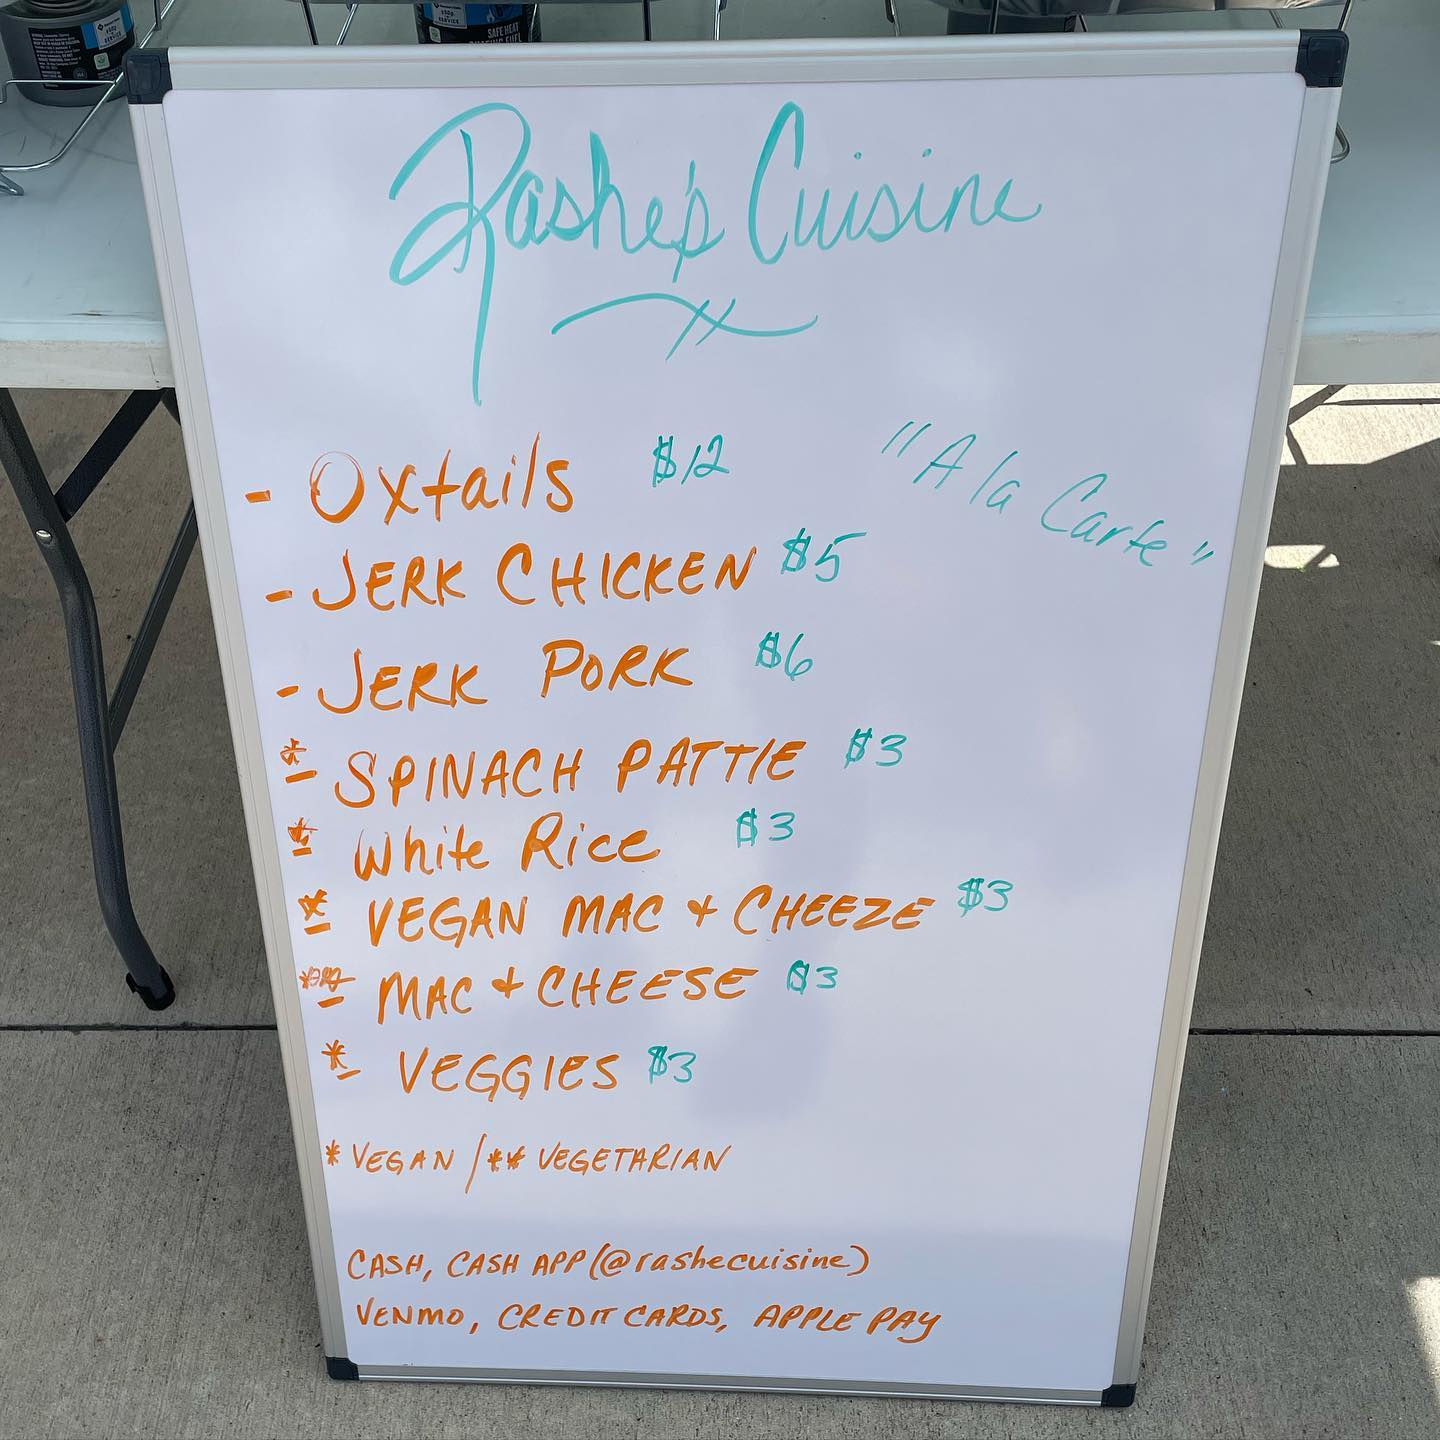 SAFE HEAT
Rashe's Cuisine
- Oxtails $12
"A la Carte"
- JERK CHICKEN $5
- JERK PORK $6
* - SPINACH PATTIE $3
* - White Rice $3
* - VEGAN MAC + CHEEZE $3
** - MAC + CHEESE $3
* - VEGGIES $3
* VEGAN / ** VEGETARIAN
CASH, CASH APP (@rashecuisine)
VENMO, CREDIT CARDS, APPLE PAY